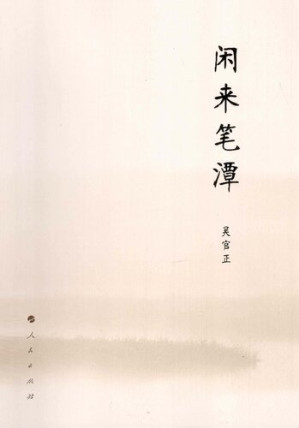 闲来笔潭
吴官正
人民出版社